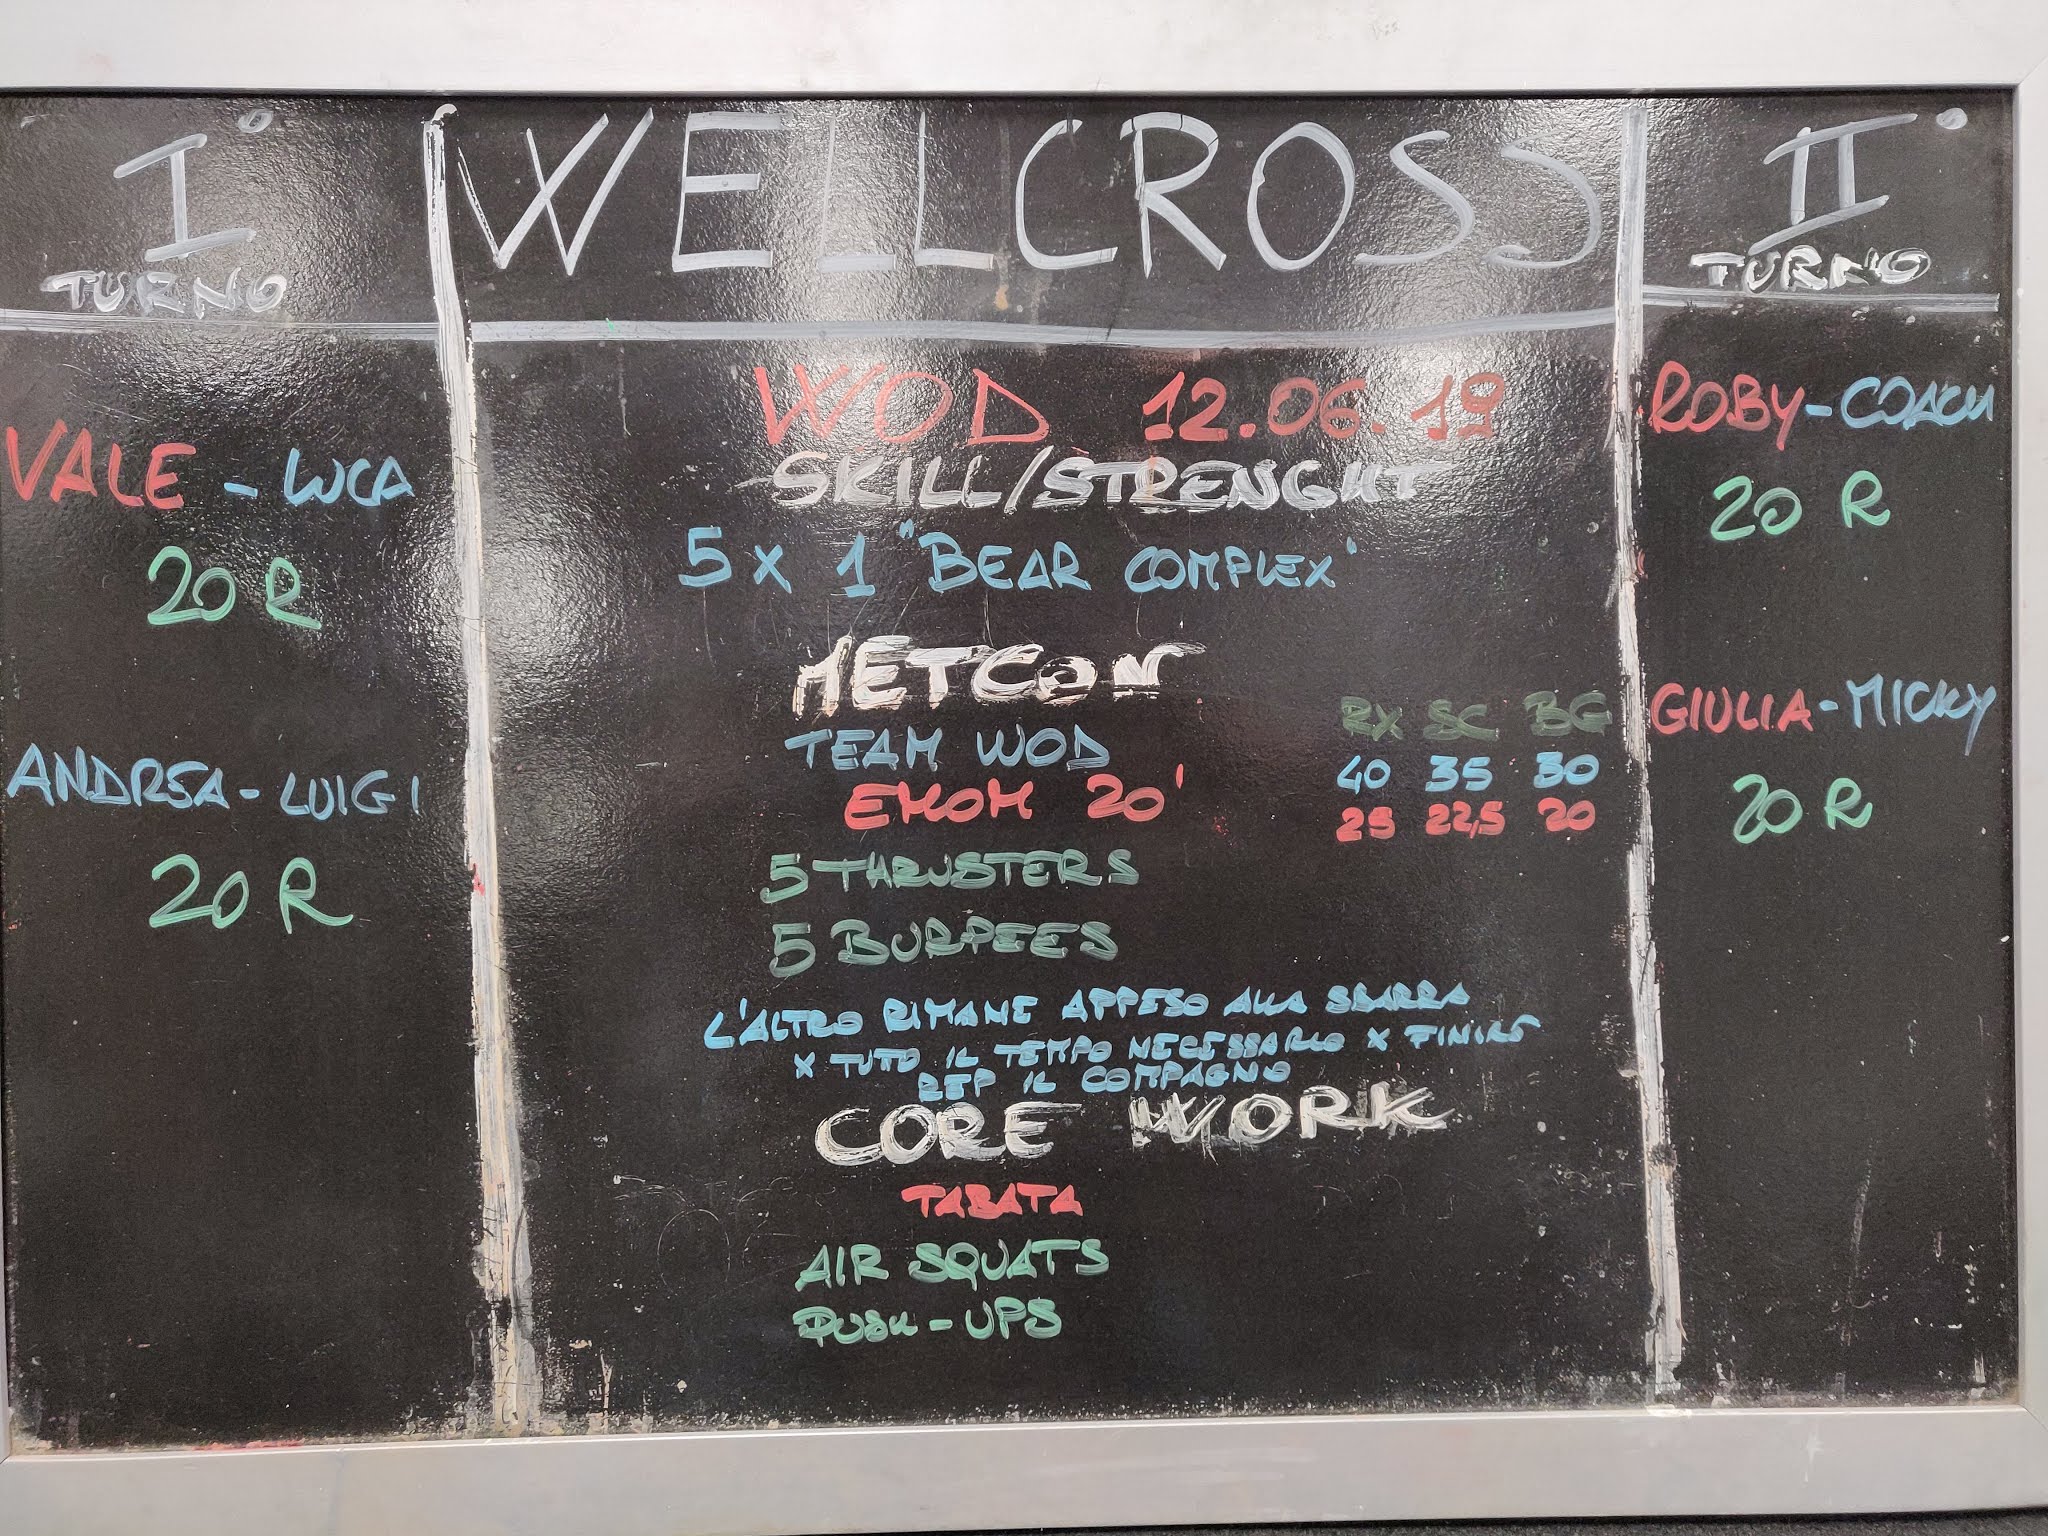 I°
TURNO
VALE - LUCA
20 R
ANDREA - LUIGI
20 R
WELLCROSS
WOD 12.06.19
SKILL/STRENGHT
5 x 1 "BEAR COMPLEX"
METCON
TEAM WOD
EMOM 20'
RX SC BG
40 35 30
25 22,5 20
5 THRUSTERS
5 BURPEES
L'ALTRO RIMANE APPESO ALLA SBARRA
X TUTTO IL TEMPO NECESSARIO X FINIRE
REP IL COMPAGNO
CORE WORK
TABATA
AIR SQUATS
PUSH-UPS
II°
TURNO
ROBY - COACH
20 R
GIULIA - MICKY
20 R